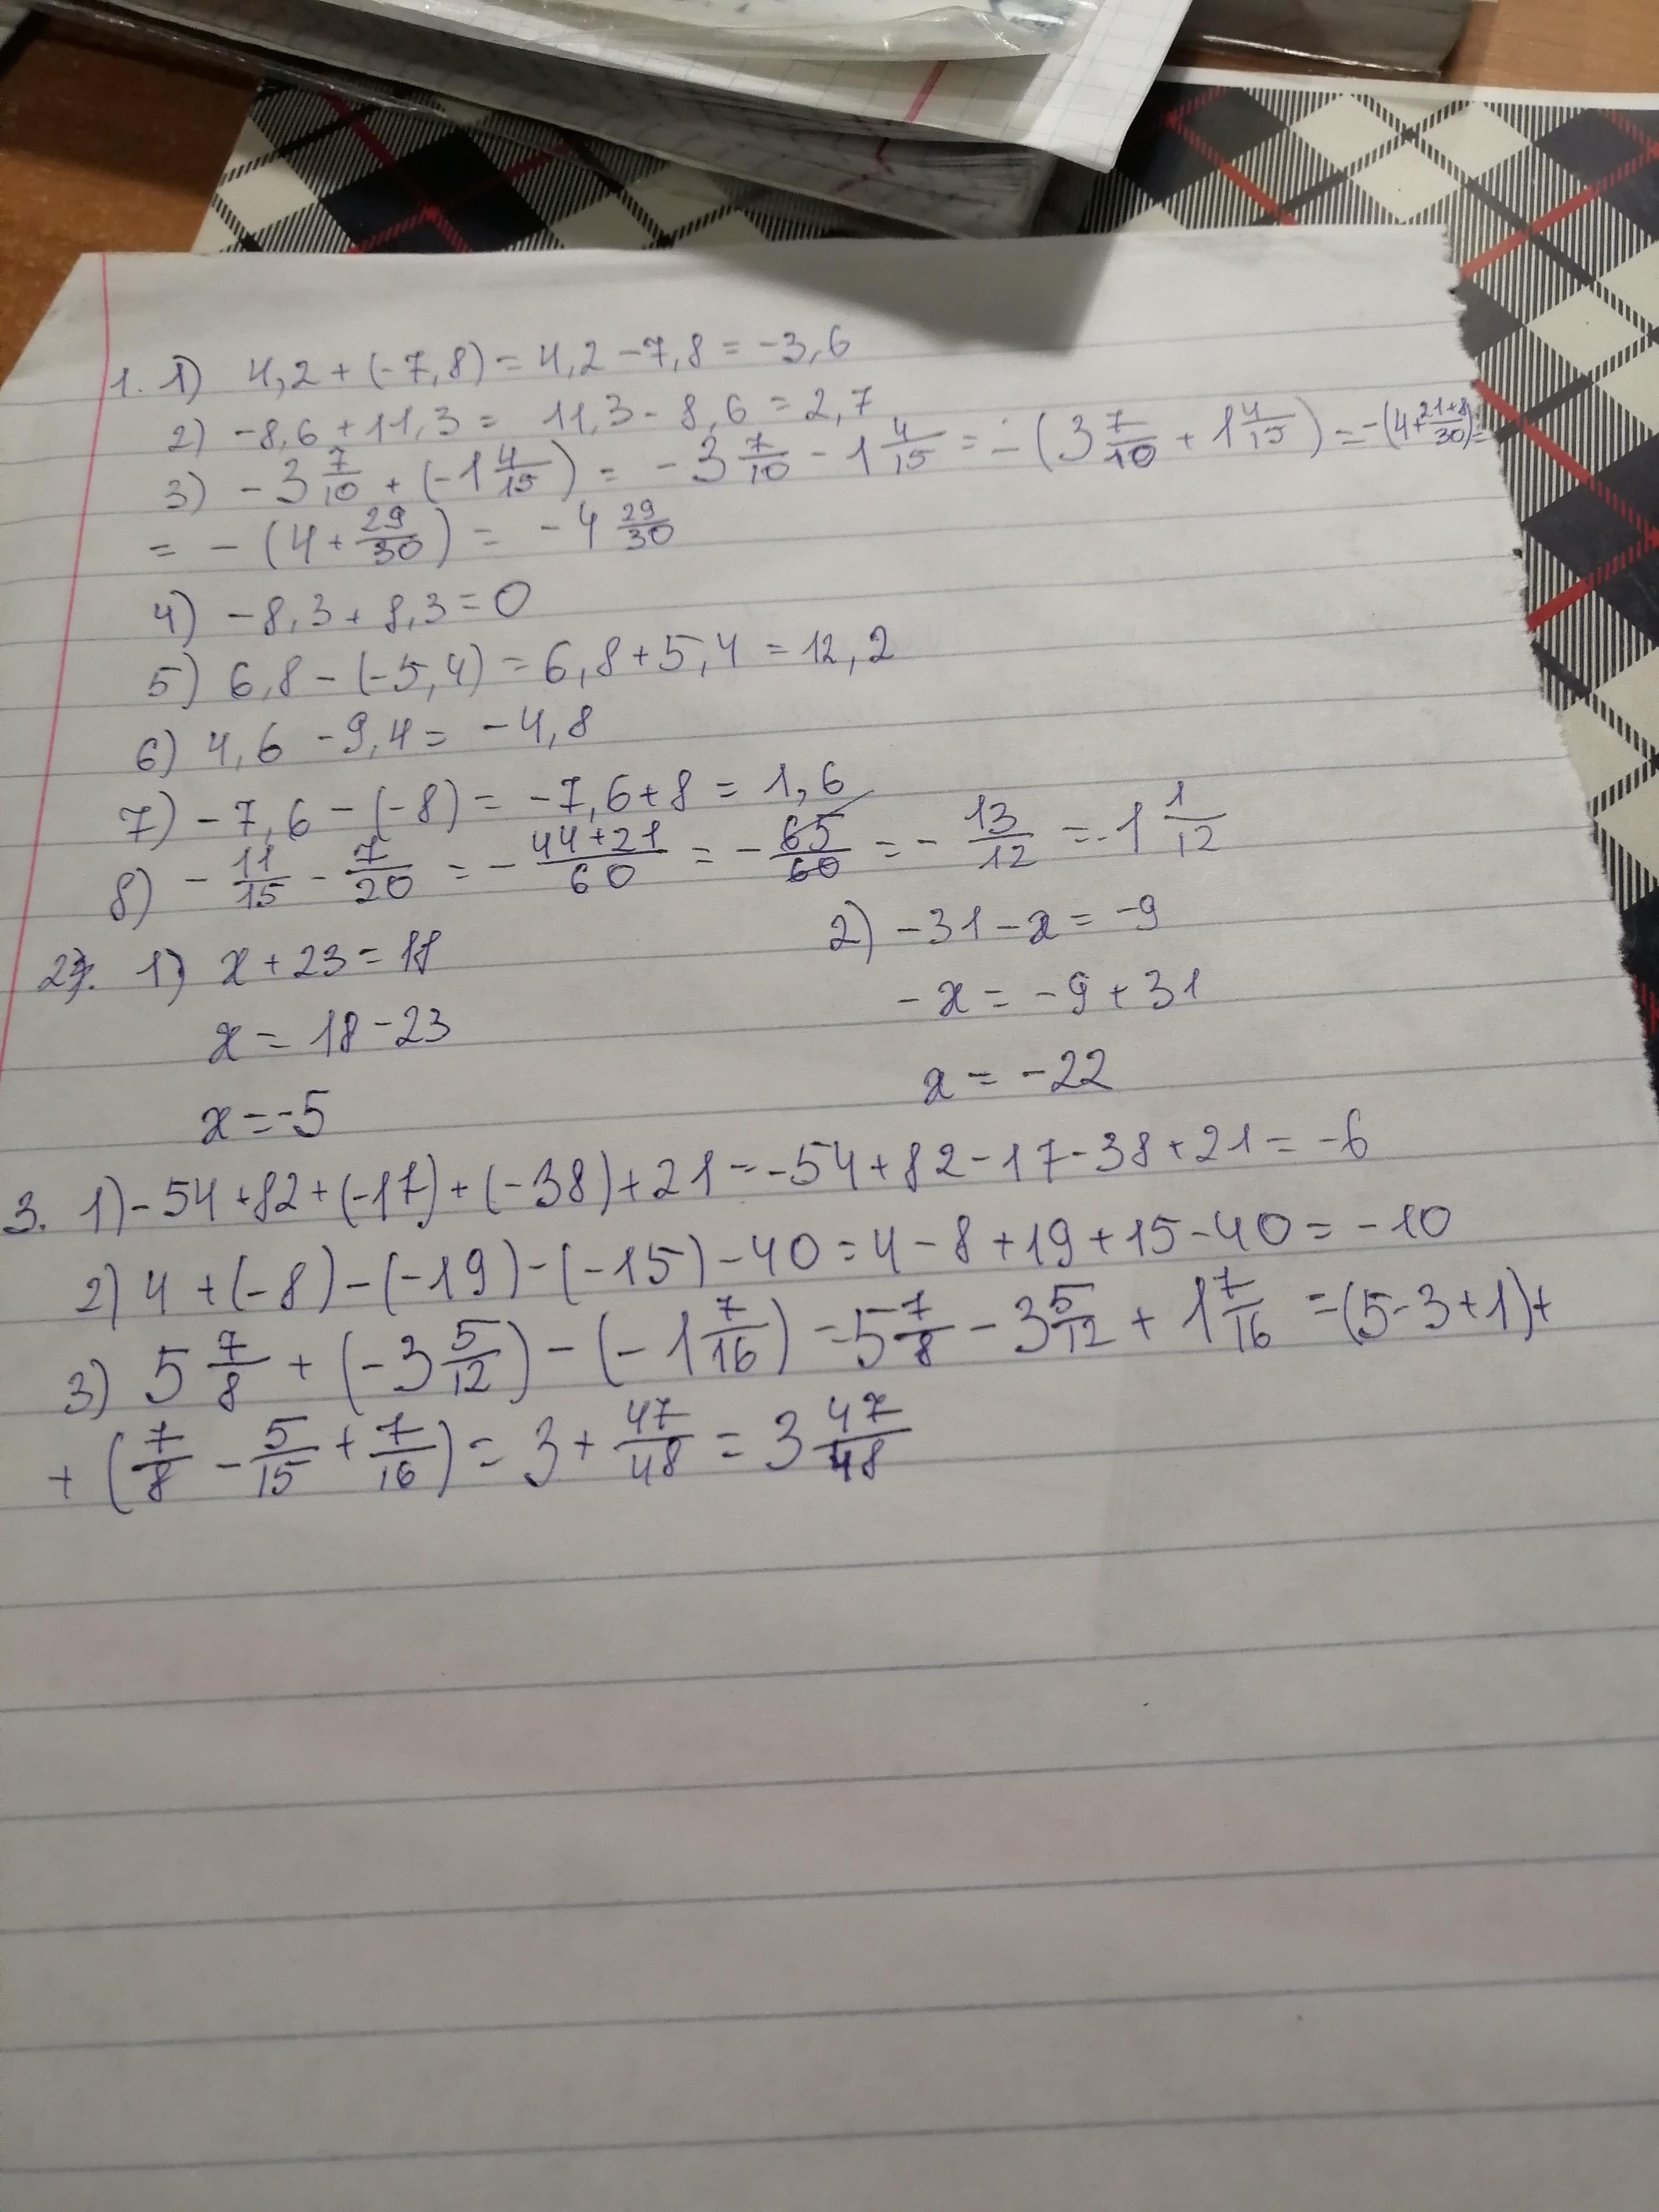 1. 1) 4,2 + (-7,8) = 4,2 - 7,8 = -3,6
2) -8,6 + 11,3 = 11,3 - 8,6 = 2,7
3) -3 7/10 + (-1 4/15) = -3 7/10 - 1 4/15 = -(3 7/10 + 1 4/15) = -(4 + 21+8/30) =
= -(4 + 29/30) = -4 29/30
4) -8,3 + 8,3 = 0
5) 6,8 - (-5,4) = 6,8 + 5,4 = 12,2
6) 4,6 - 9,4 = -4,8
7) -7,6 - (-8) = -7,6 + 8 = 1,6
8) -11/15 - 7/20 = -44+21/60 = -65/60 = -13/12 = -1 1/12
2. 1) x + 23 = 18
x = 18 - 23
x = -5
2) -31 - x = -9
-x = -9 + 31
x = -22
3. 1) -54 + 82 + (-17) + (-38) + 21 = -54 + 82 - 17 - 38 + 21 = -6
2) 4 + (-8) - (-19) - (-15) - 40 = 4 - 8 + 19 + 15 - 40 = -10
3) 5 7/8 + (-3 5/12) - (-1 7/16) = 5 7/8 - 3 5/12 + 1 7/16 = (5 - 3 + 1) +
+ (7/8 - 5/15 + 7/16) = 3 + 47/48 = 3 47/48